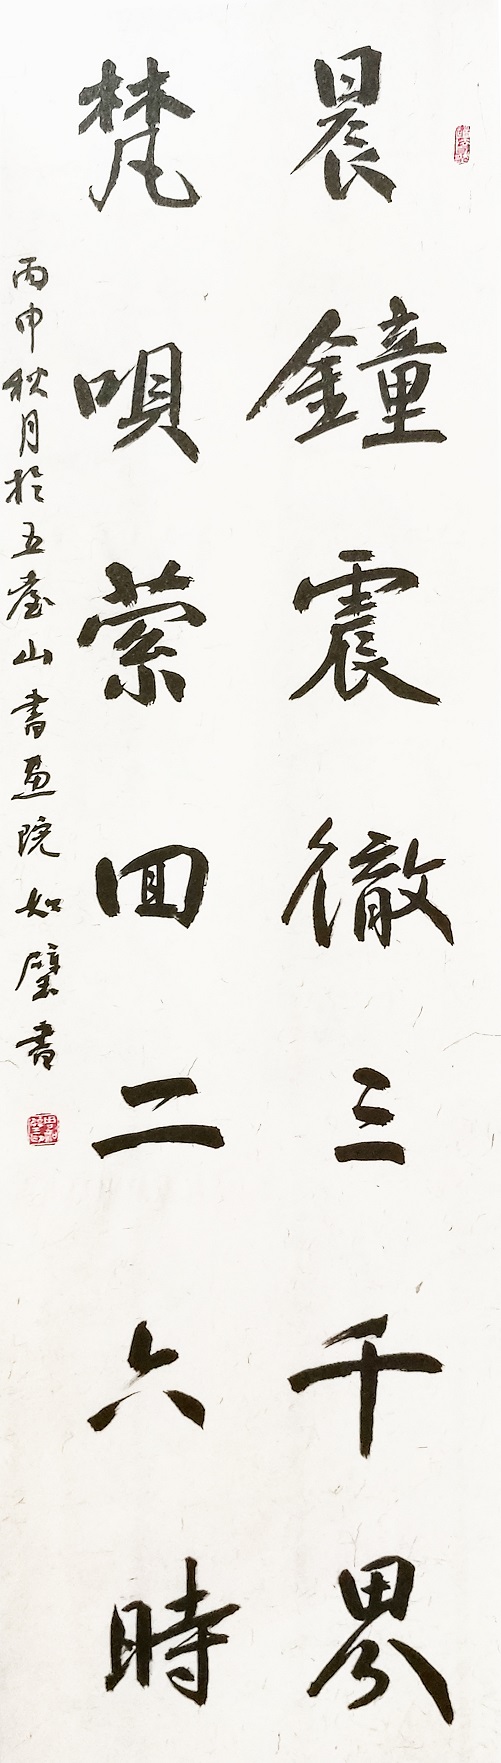 晨鐘震徹三千界
梵唄縈回二六時
丙申秋月於五臺山書畫院如璧書